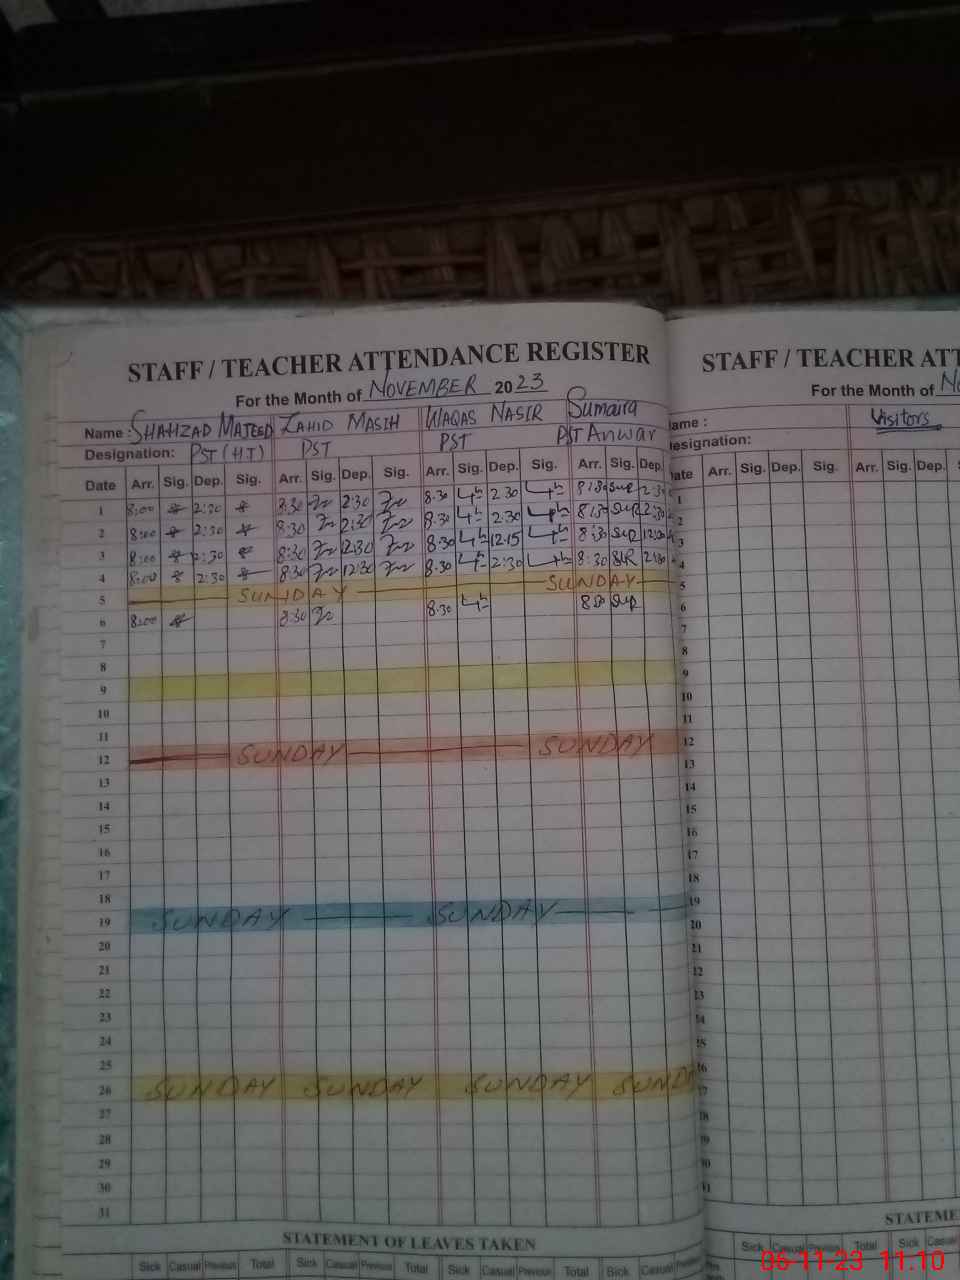 STAFF / TEACHER ATTENDANCE REGISTER
For the Month of NOVEMBER 2023
Name : SHAHZAD MAJEED ZAHID MASIH WAQAS NASIR Sumaira
Designation: PST (H.T) PST PST PST Anwar
Date Arr. Sig. Dep. Sig. Arr. Sig. Dep. Sig. Arr. Sig. Dep. Sig. Arr. Sig. Dep.
1 8:00 2:30 8:30 2:30 8.30 2.30 8:30
2 8:00 2:30 8:30 2:30 8.30 2.30 8:30
3 8:00 2:30 8:30 12:30 8.30 12.15 8:30
4 8:00 2:30 8:30 12:30 8.30 2:30 8:30
5 SUNDAY SUNDAY
6 8:00 8:30 8.30 8:30
7
8
9
10
11
12 SUNDAY SUNDAY
13
14
15
16
17
18
19 SUNDAY SUNDAY
20
21
22
23
24
25
26 SUNDAY SUNDAY SUNDAY SUNDA
27
28
29
30
31
STATEMENT OF LEAVES TAKEN
Sick Casual Previous Total Sick Casual Previous Total Sick Casual Previous Total Sick Casual Previous
STAFF / TEACHER ATT
For the Month of No
ame :
Visitors
esignation:
ate Arr. Sig. Dep. Sig. Arr. Sig. Dep.
1
2
3
4
5
6
7
8
9
10
11
12
13
14
15
16
17
18
19
20
21
12
23
24
25
26
27
STATEME
Sick Casual Previous Total Sick Casual
06-11-23 11.10